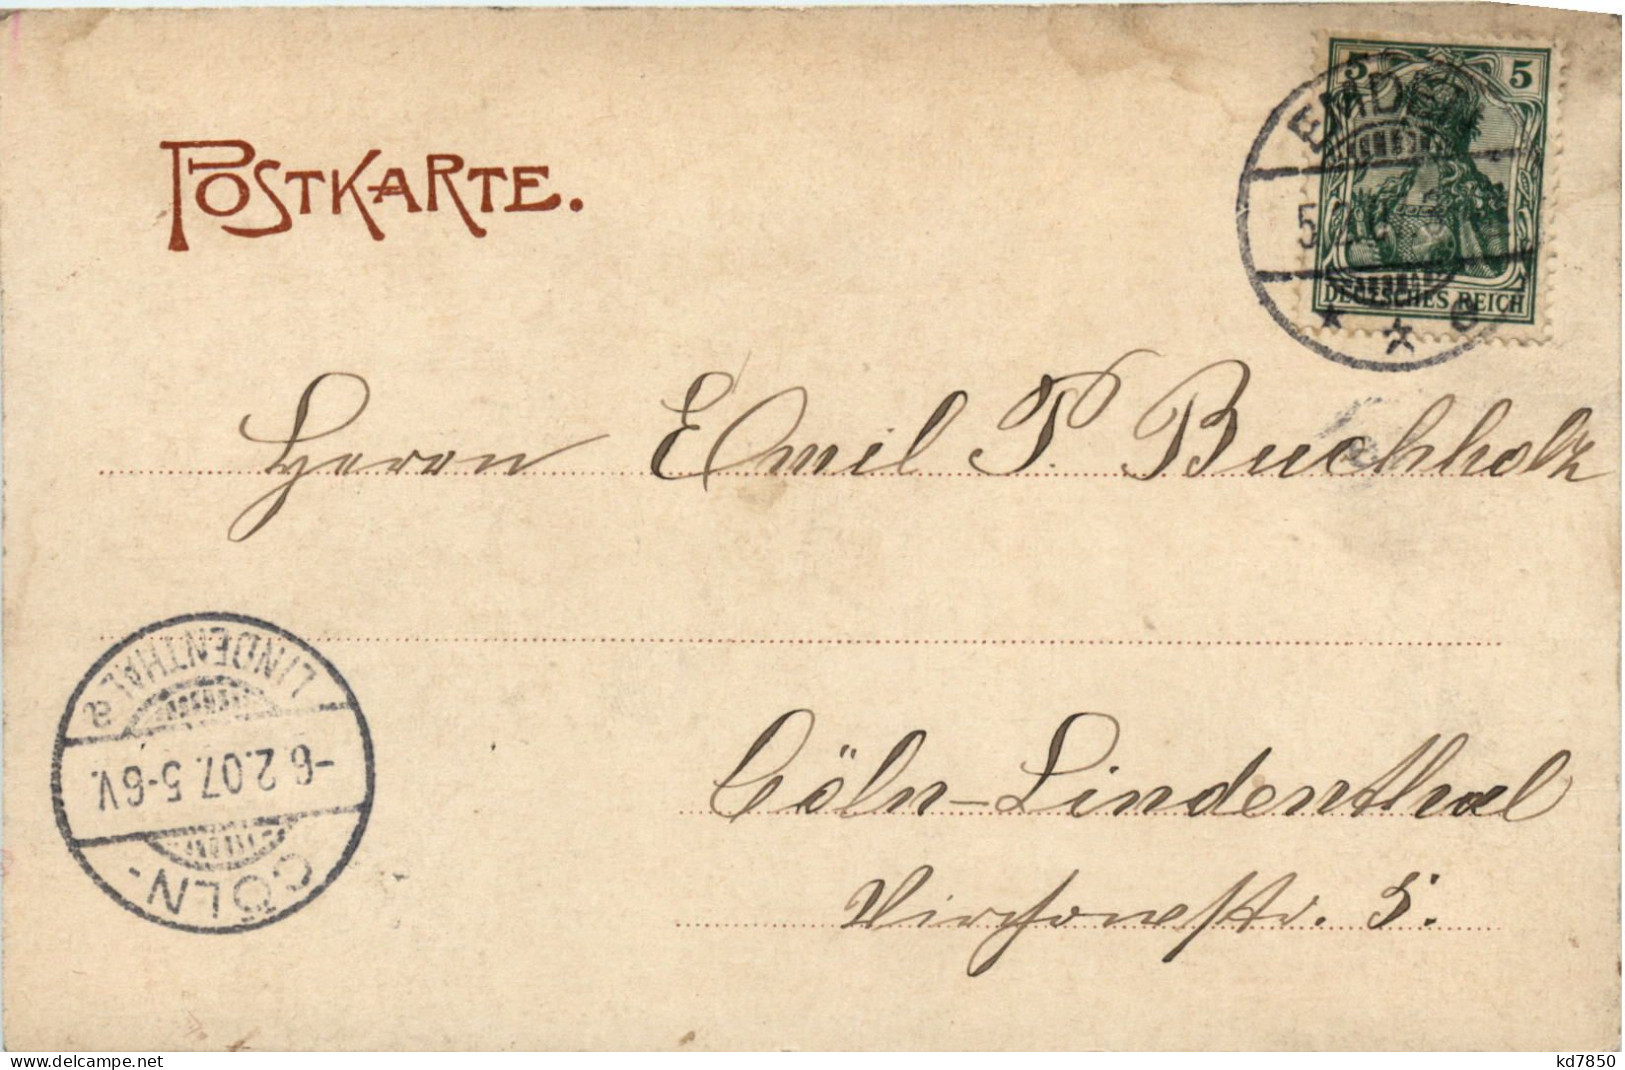 POSTKARTE.
5 5
EMDEN
5.2.07
DEUTSCHES REICH
* * e
Herrn Emil P. Buchholz
LINDENTHAL a
-6.2.07. 5-6V.
CÖLN-
Cöln-Lindenthal
Virchowstr. 5.
www.delcampe.net
kd7850